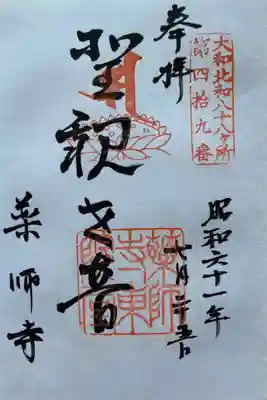 大和北和八十八ヶ所
第四拾九番
奉拝
聖観世音
昭和六十一年
七月二十五日
薬師寺